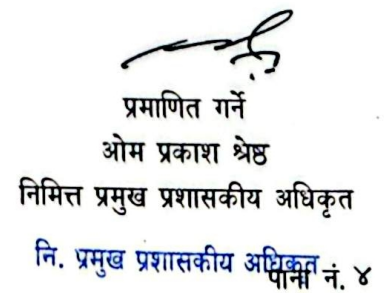 प्रमाणित गर्ने
ओम प्रकाश श्रेष्ठ
निमित्त प्रमुख प्रशासकीय अधिकृत
नि. प्रमुख प्रशासकीय अधिकृत
पाना नं. ४